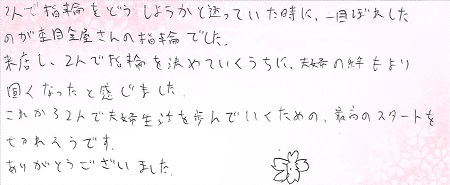 2人で指輪をどうしようかと迷っていた時に、一目ぼれした
のが杢目金屋さんの指輪でした。
来店し、2人で指輪を決めていくうちに、夫婦の絆もより
固くなったと感じました。
これから2人で夫婦生活を歩んでいくための、最高のスタートを
切れそうです。
ありがとうございました。